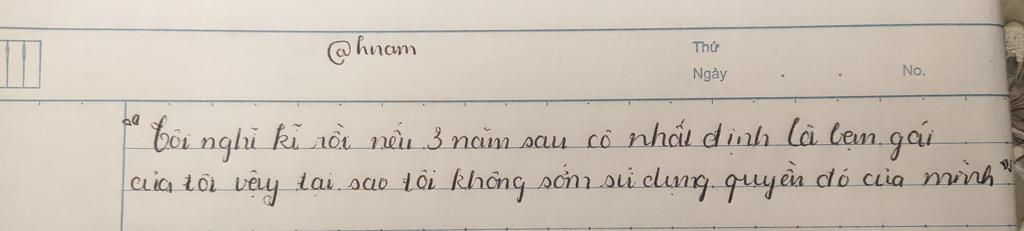 @hnam
Thứ
Ngày . . No.
"Tôi nghĩ kĩ rồi nếu 3 năm sau cô nhất định là bạn gái
của tôi vậy tại sao tôi không sớm sử dụng quyền đó của mình"